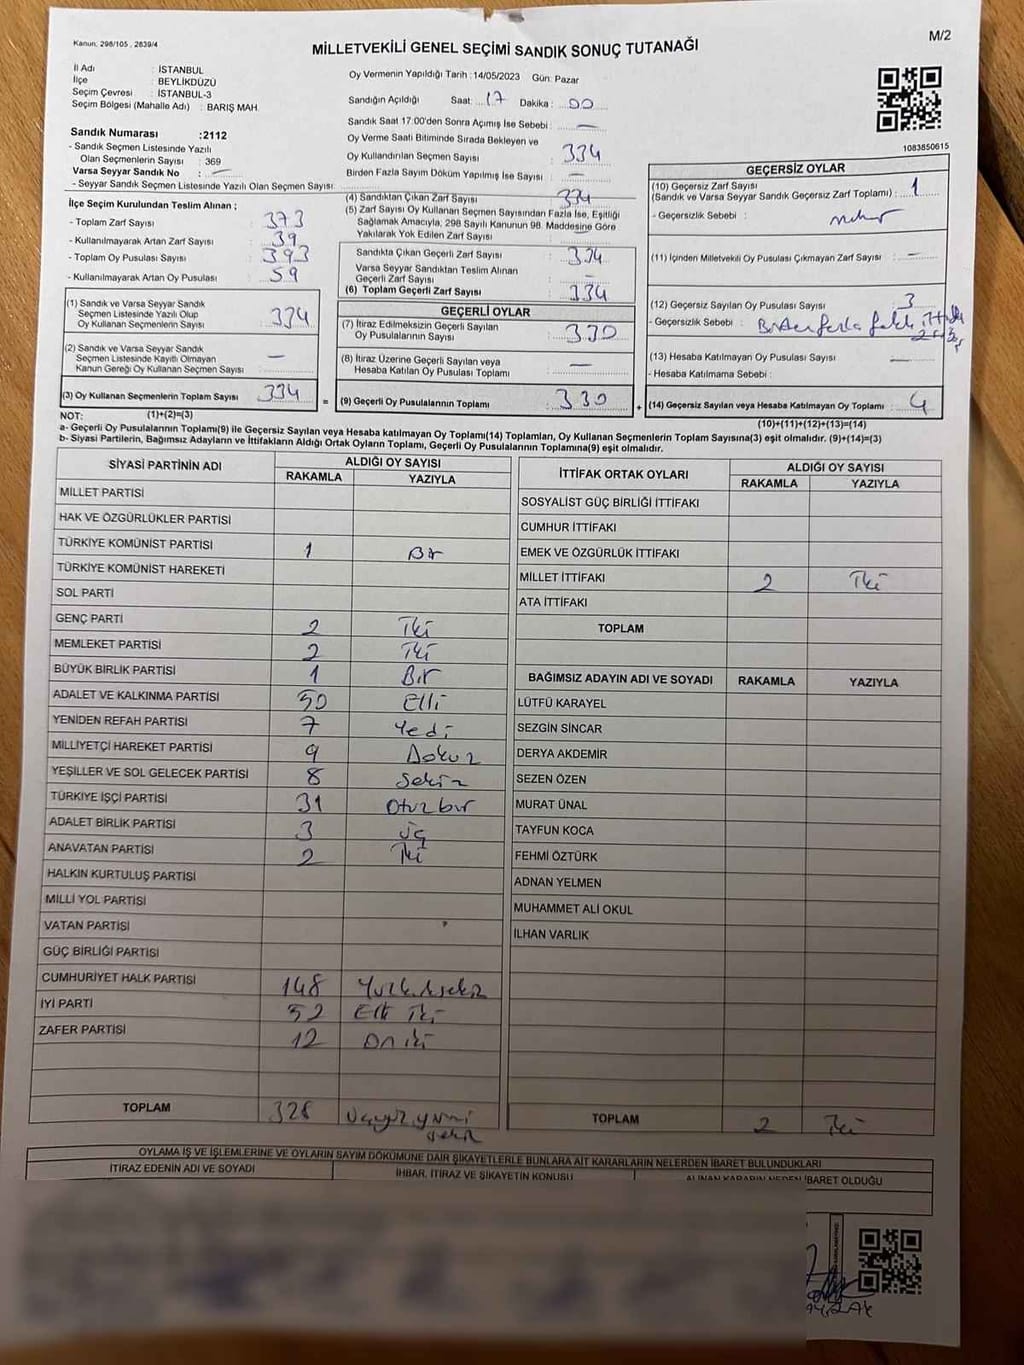 Kanun; 298/105 , 2839/4
MİLLETVEKİLİ GENEL SEÇİMİ SANDIK SONUÇ TUTANAĞI
M/2
İl Adı : İSTANBUL
İlçe : BEYLİKDÜZÜ
Seçim Çevresi : İSTANBUL-3
Seçim Bölgesi (Mahalle Adı) : BARIŞ MAH.
Sandık Numarası :2112
- Sandık Seçmen Listesinde Yazılı
Olan Seçmenlerin Sayısı : 369
Varsa Seyyar Sandık No : —
- Seyyar Sandık Seçmen Listesinde Yazılı Olan Seçmen Sayısı
Oy Vermenin Yapıldığı Tarih :14/05/2023 Gün: Pazar
Sandığın Açıldığı Saat: 17 Dakika : 00
Sandık Saat 17:00'den Sonra Açımış İse Sebebi : —
Oy Verme Saati Bitiminde Sırada Bekleyen ve
Oy Kullandırılan Seçmen Sayısı : 334
Birden Fazla Sayım Döküm Yapılmış İse Sayısı : —
1083850615
İlçe Seçim Kurulundan Teslim Alınan ;
- Toplam Zarf Sayısı : 373
- Kullanılmayarak Artan Zarf Sayısı : 39
- Toplam Oy Pusulası Sayısı : 393
- Kullanılmayarak Artan Oy Pusulası : 59
(1) Sandık ve Varsa Seyyar Sandık
Seçmen Listesinde Yazılı Olup
Oy Kullanan Seçmenlerin Sayısı : 334
(2) Sandık ve Varsa Seyyar Sandık
Seçmen Listesinde Kayıtlı Olmayan
Kanun Gereği Oy Kullanan Seçmen Sayısı : —
(3) Oy Kullanan Seçmenlerin Toplam Sayısı : 334 =
(4) Sandıktan Çıkan Zarf Sayısı : 334
(5) Zarf Sayısı Oy Kullanan Seçmen Sayısından Fazla İse, Eşitliği
Sağlamak Amacıyla, 298 Sayılı Kanunun 98. Maddesine Göre
Yakılarak Yok Edilen Zarf Sayısı :
Sandıkta Çıkan Geçerli Zarf Sayısı : 334
Varsa Seyyar Sandıktan Teslim Alınan
Geçerli Zarf Sayısı : —
(6) Toplam Geçerli Zarf Sayısı : 334
GEÇERLİ OYLAR
(7) İtiraz Edilmeksizin Geçerli Sayılan
Oy Pusulalarının Sayısı : 330
(8) İtiraz Üzerine Geçerli Sayılan veya
Hesaba Katılan Oy Pusulası Toplamı : —
(9) Geçerli Oy Pusulalarının Toplamı : 330 +
GEÇERSİZ OYLAR
(10) Geçersiz Zarf Sayısı
(Sandık ve Varsa Seyyar Sandık Geçersiz Zarf Toplamı) : 1
- Geçersizlik Sebebi :
(11) İçinden Milletvekili Oy Pusulası Çıkmayan Zarf Sayısı : —
(12) Geçersiz Sayılan Oy Pusulası Sayısı : 3
- Geçersizlik Sebebi : Birden fazla farklı
(13) Hesaba Katılmayan Oy Pusulası Sayısı : —
- Hesaba Katılmama Sebebi :
(14) Geçersiz Sayılan veya Hesaba Katılmayan Oy Toplamı : 4
NOT: (1)+(2)=(3)
(10)+(11)+(12)+(13)=(14)
a- Geçerli Oy Pusulalarının Toplam(9) ile Geçersiz Sayılan veya Hesaba katılmayan Oy Toplamı(14) Toplamları, Oy Kullanan Seçmenlerin Toplam Sayısına(3) eşit olmalıdır. (9)+(14)=(3)
b- Siyasi Partilerin, Bağımsız Adayların ve İttifakların Aldığı Ortak Oyların Toplamı, Geçerli Oy Pusulalarının Toplamına(9) eşit olmalıdır.
SİYASİ PARTİNİN ADI ALDIĞI OY SAYISI
RAKAMLA YAZIYLA
MİLLET PARTİSİ
HAK VE ÖZGÜRLÜKLER PARTİSİ
TÜRKİYE KOMÜNİST PARTİSİ 1 Bir
TÜRKİYE KOMÜNİST HAREKETİ
SOL PARTİ
GENÇ PARTİ 2 İki
MEMLEKET PARTİSİ 2 İki
BÜYÜK BİRLİK PARTİSİ 1 Bir
ADALET VE KALKINMA PARTİSİ 50 Elli
YENİDEN REFAH PARTİSİ 7 Yedi
MİLLİYETÇİ HAREKET PARTİSİ 9 Dokuz
YEŞİLLER VE SOL GELECEK PARTİSİ 8 Sekiz
TÜRKİYE İŞÇİ PARTİSİ 31 Otuzbir
ADALET BİRLİK PARTİSİ 3 üç
ANAVATAN PARTİSİ 2 İki
HALKIN KURTULUŞ PARTİSİ
MİLLİ YOL PARTİSİ
VATAN PARTİSİ
GÜÇ BİRLİĞİ PARTİSİ
CUMHURİYET HALK PARTİSİ 148 Yüzkırksekiz
İYİ PARTİ 52 Elli İki
ZAFER PARTİSİ 12 On iki
TOPLAM 328 Üçyüz yirmi
sekiz
İTTİFAK ORTAK OYLARI ALDIĞI OY SAYISI
RAKAMLA YAZIYLA
SOSYALİST GÜÇ BİRLİĞİ İTTİFAKI
CUMHUR İTTİFAKI
EMEK VE ÖZGÜRLÜK İTTİFAKI
MİLLET İTTİFAKI 2 İki
ATA İTTİFAKI
TOPLAM
BAĞIMSIZ ADAYIN ADI VE SOYADI RAKAMLA YAZIYLA
LÜTFÜ KARAYEL
SEZGİN SİNCAR
DERYA AKDEMİR
SEZEN ÖZEN
MURAT ÜNAL
TAYFUN KOCA
FEHMİ ÖZTÜRK
ADNAN YELMEN
MUHAMMET ALİ OKUL
İLHAN VARLIK
TOPLAM 2 İki
OYLAMA İŞ VE İŞLEMLERİNE VE OYLARIN SAYIM DÖKÜMÜNE DAİR ŞİKAYETLERLE BUNLARA AİT KARARLARIN NELERDEN İBARET BULUNDUKLARI
İTİRAZ EDENİN ADI VE SOYADI İHBAR, İTİRAZ VE ŞİKAYETİN KONUSU ALINAN KARARIN NEDEN İBARET OLDUĞU